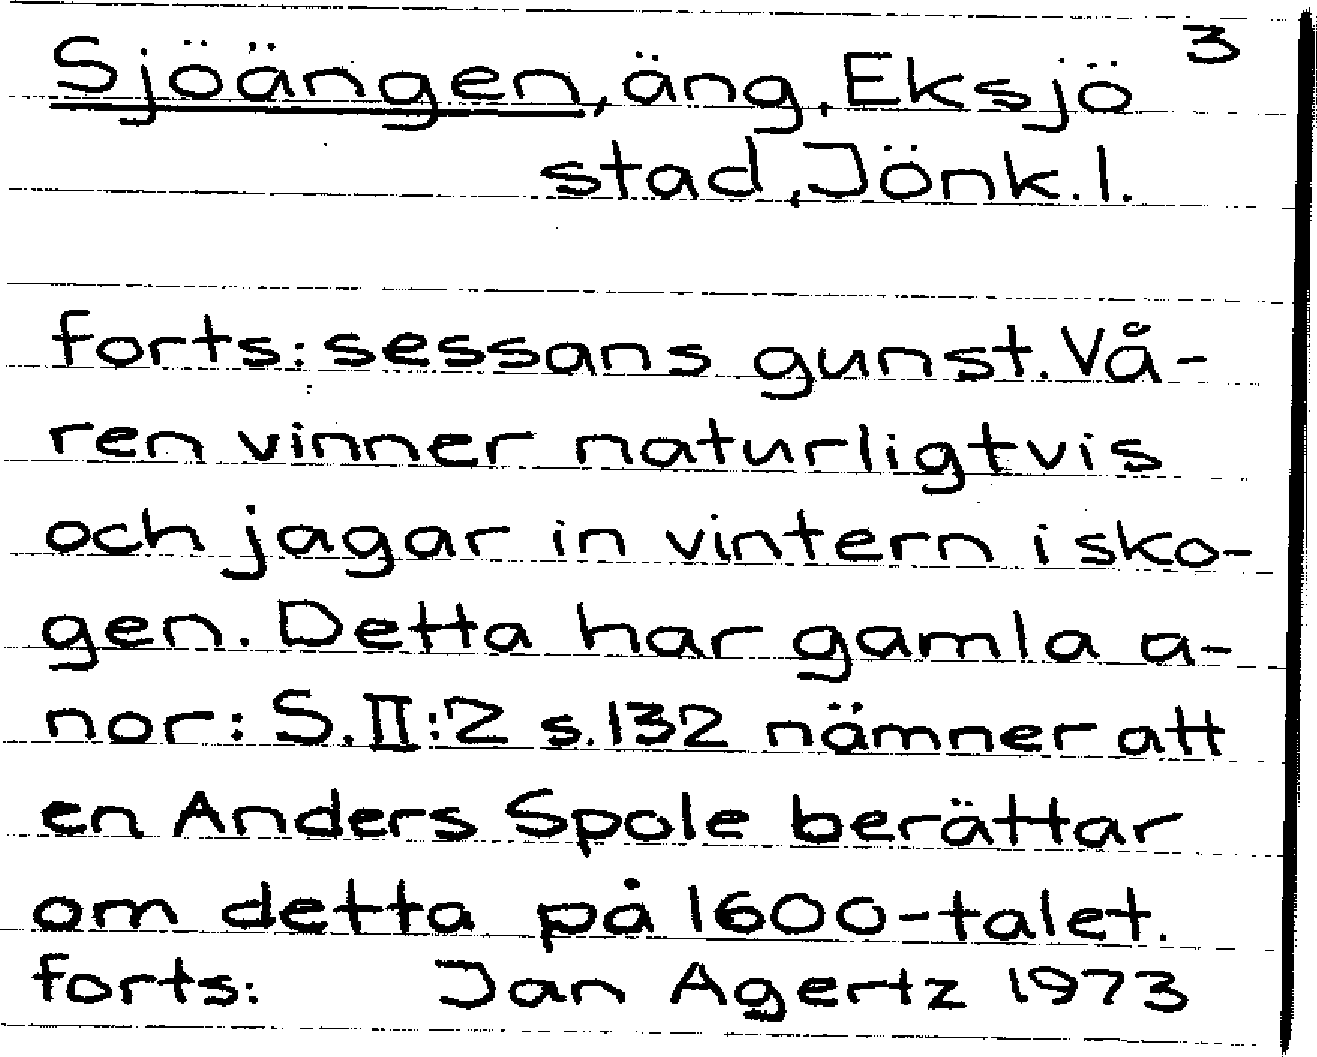 3
Sjöängen, äng, Eksjö
stad, Jönk.l.
forts: sessans gunst. Vå-
ren vinner naturligtvis
och jagar in vintern i sko-
gen. Detta har gamla a-
nor: S.II:2 s.132 nämner att
en Anders Spole berättar
om detta på 1600-talet.
forts: Jan Agertz 1973